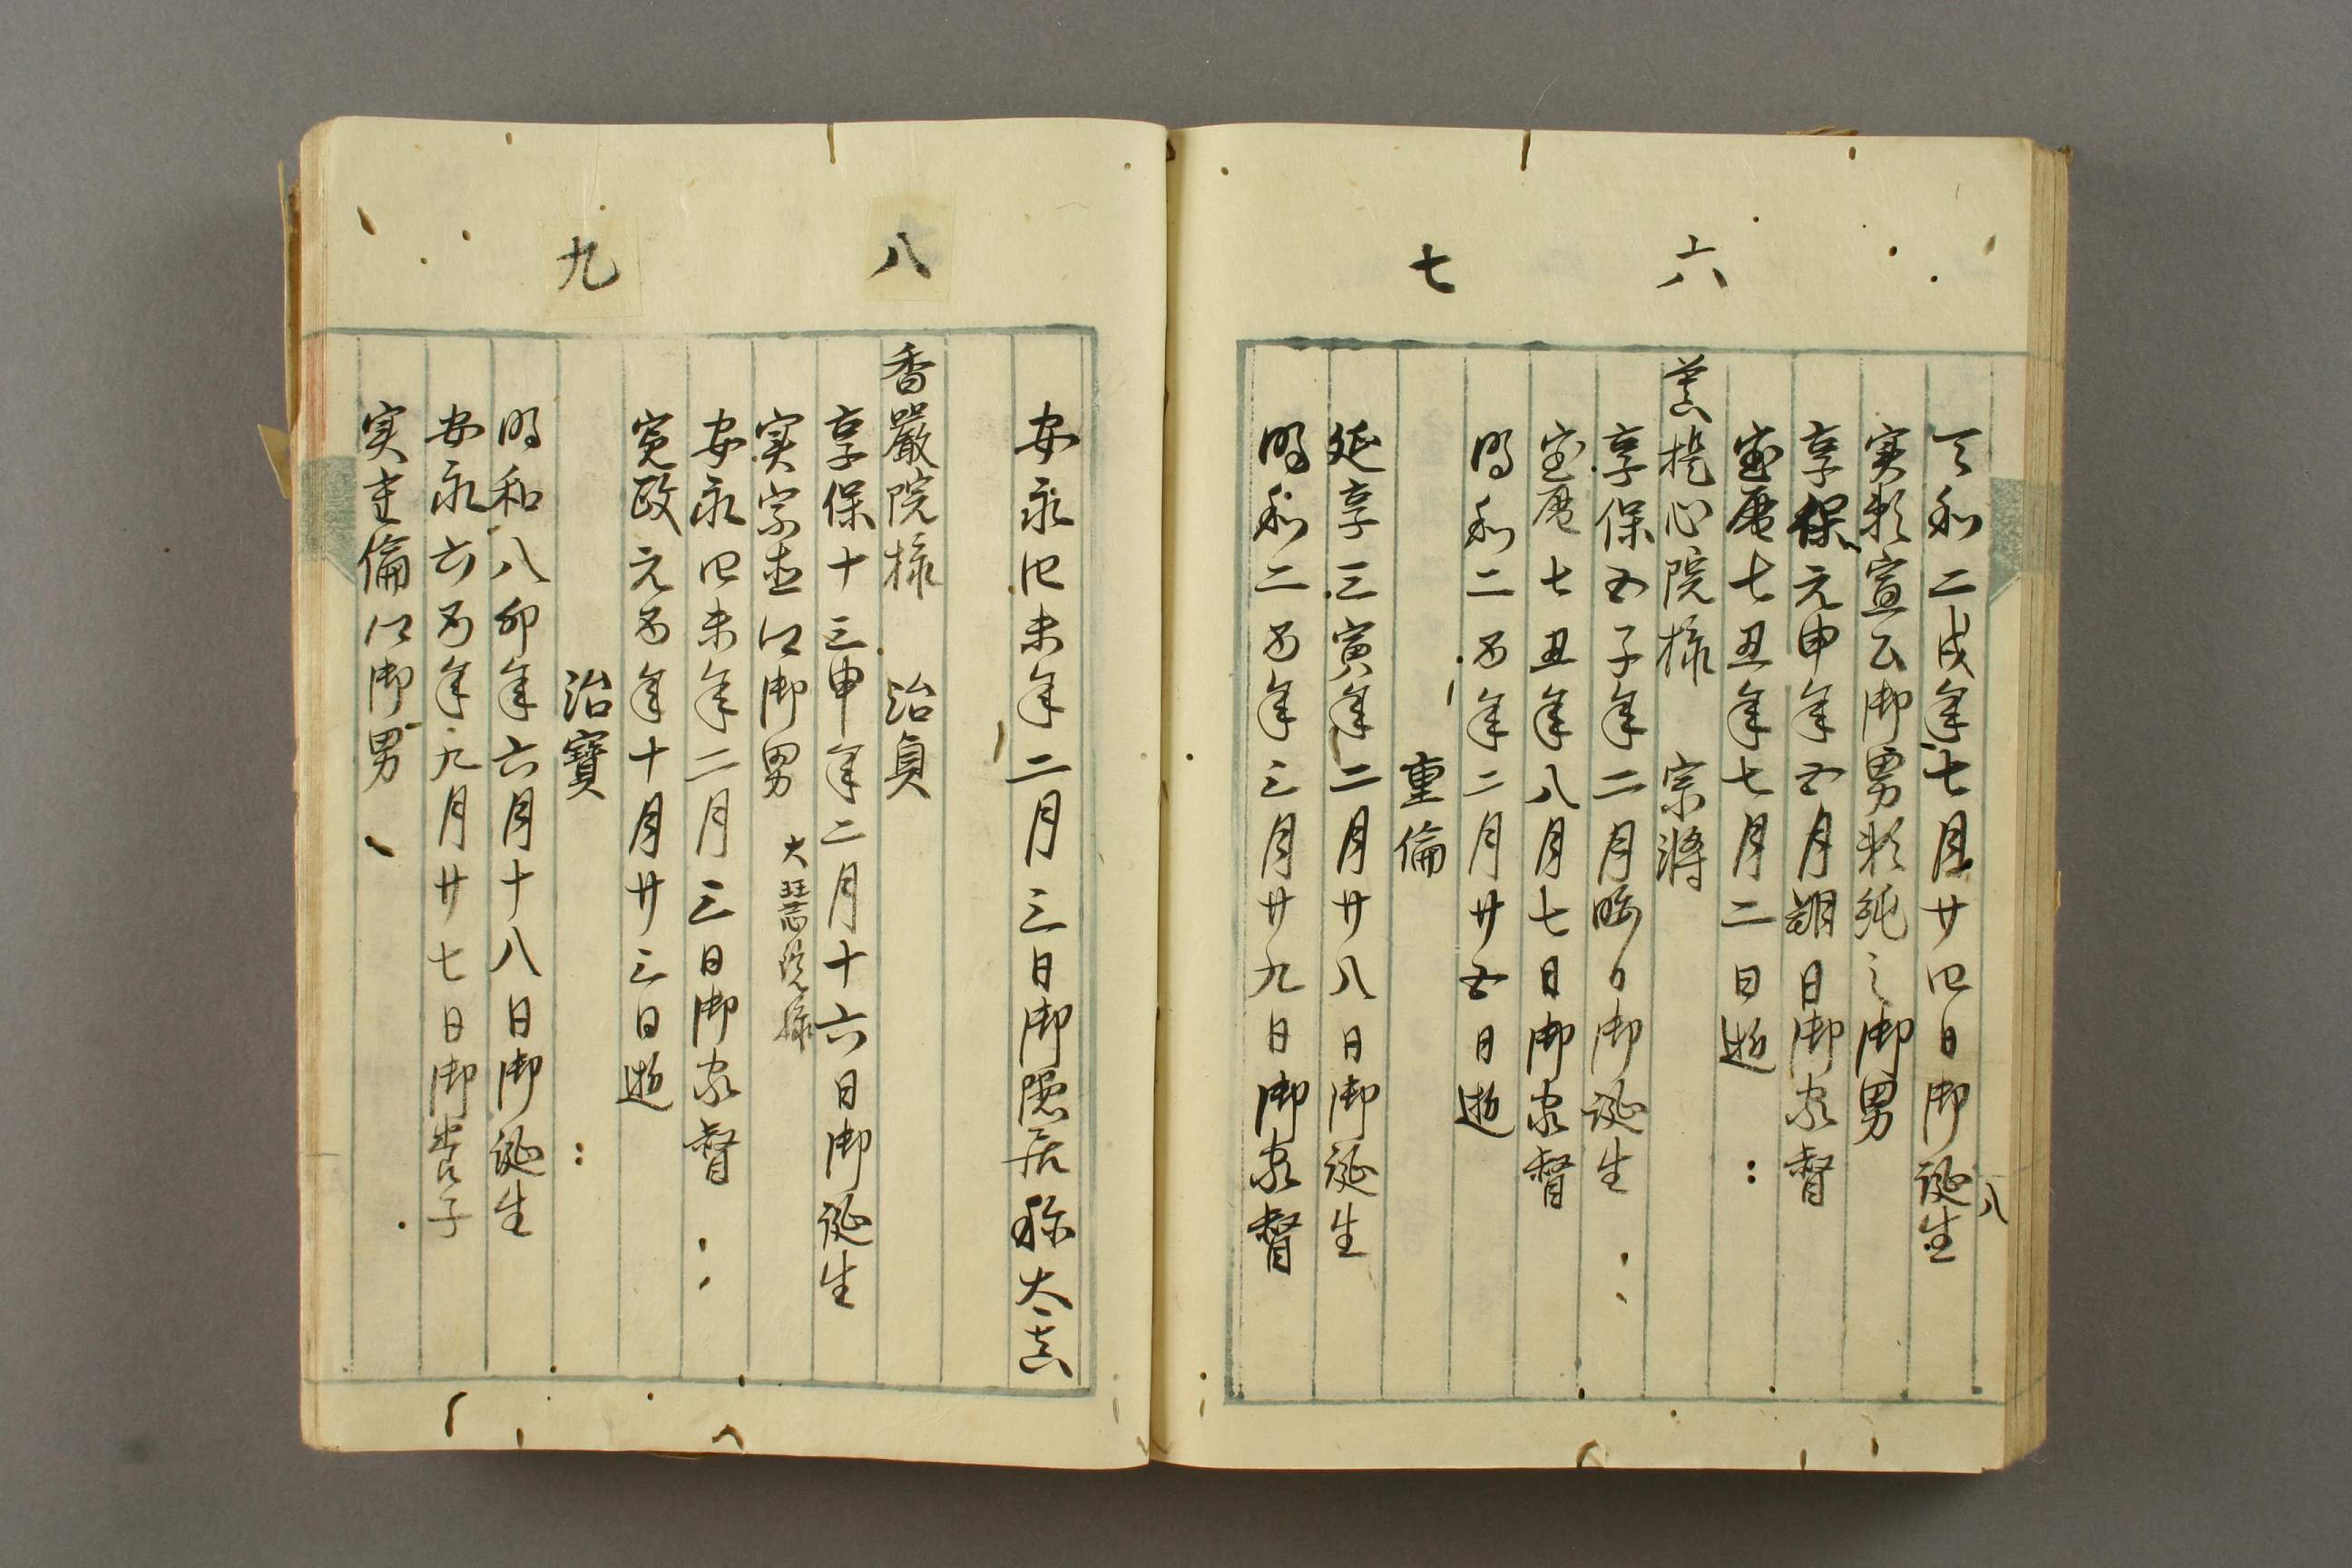 八
天和二戌年七月廿四日御誕生
実頼宣公御男頼純之御男
享保元申年五月朔日御家督
宝暦七丑年七月二日逝
六
菩提心院様 宗将
享保五子年二月晦日御誕生
宝暦七丑年八月七日御家督
明和二酉年二月廿五日逝
七
重倫
延享三寅年二月廿八日御誕生
明和二酉年三月廿九日御家督
安永四未年二月三日御隠居称大真
八
香嚴院様 治貞
享保十三申年二月十六日御誕生
実宗直公御男
大慧院様
安永四未年二月三日御家督
寛政元酉年十月廿三日逝
九
治寶
明和八卯年六月十八日御誕生
安永六酉年九月廿七日御養子
実重倫公御男